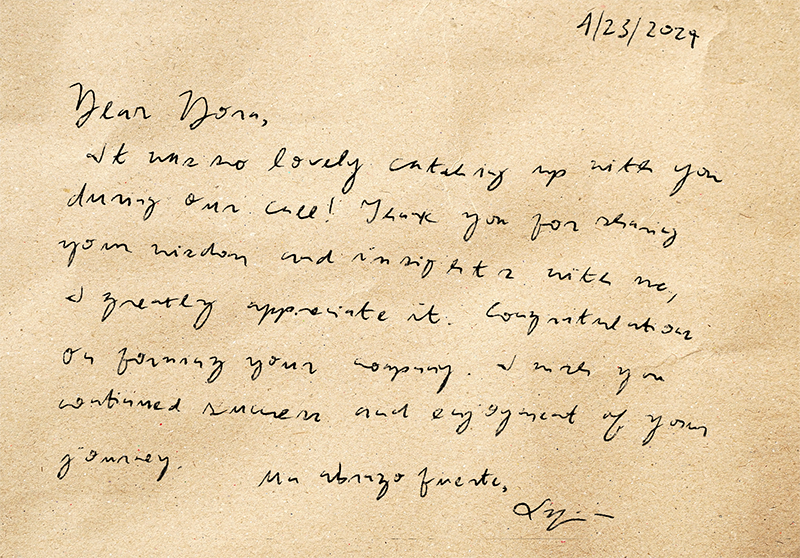 4/23/2024
Dear Dora,
It was so lovely catching up with you
during our call! Thank you for sharing
your wisdom and insights with me,
I greatly appreciate it. Congratulations
on forming your company. I wish you
continued success and enjoyment of your
journey.
Un abrazo fuerte,